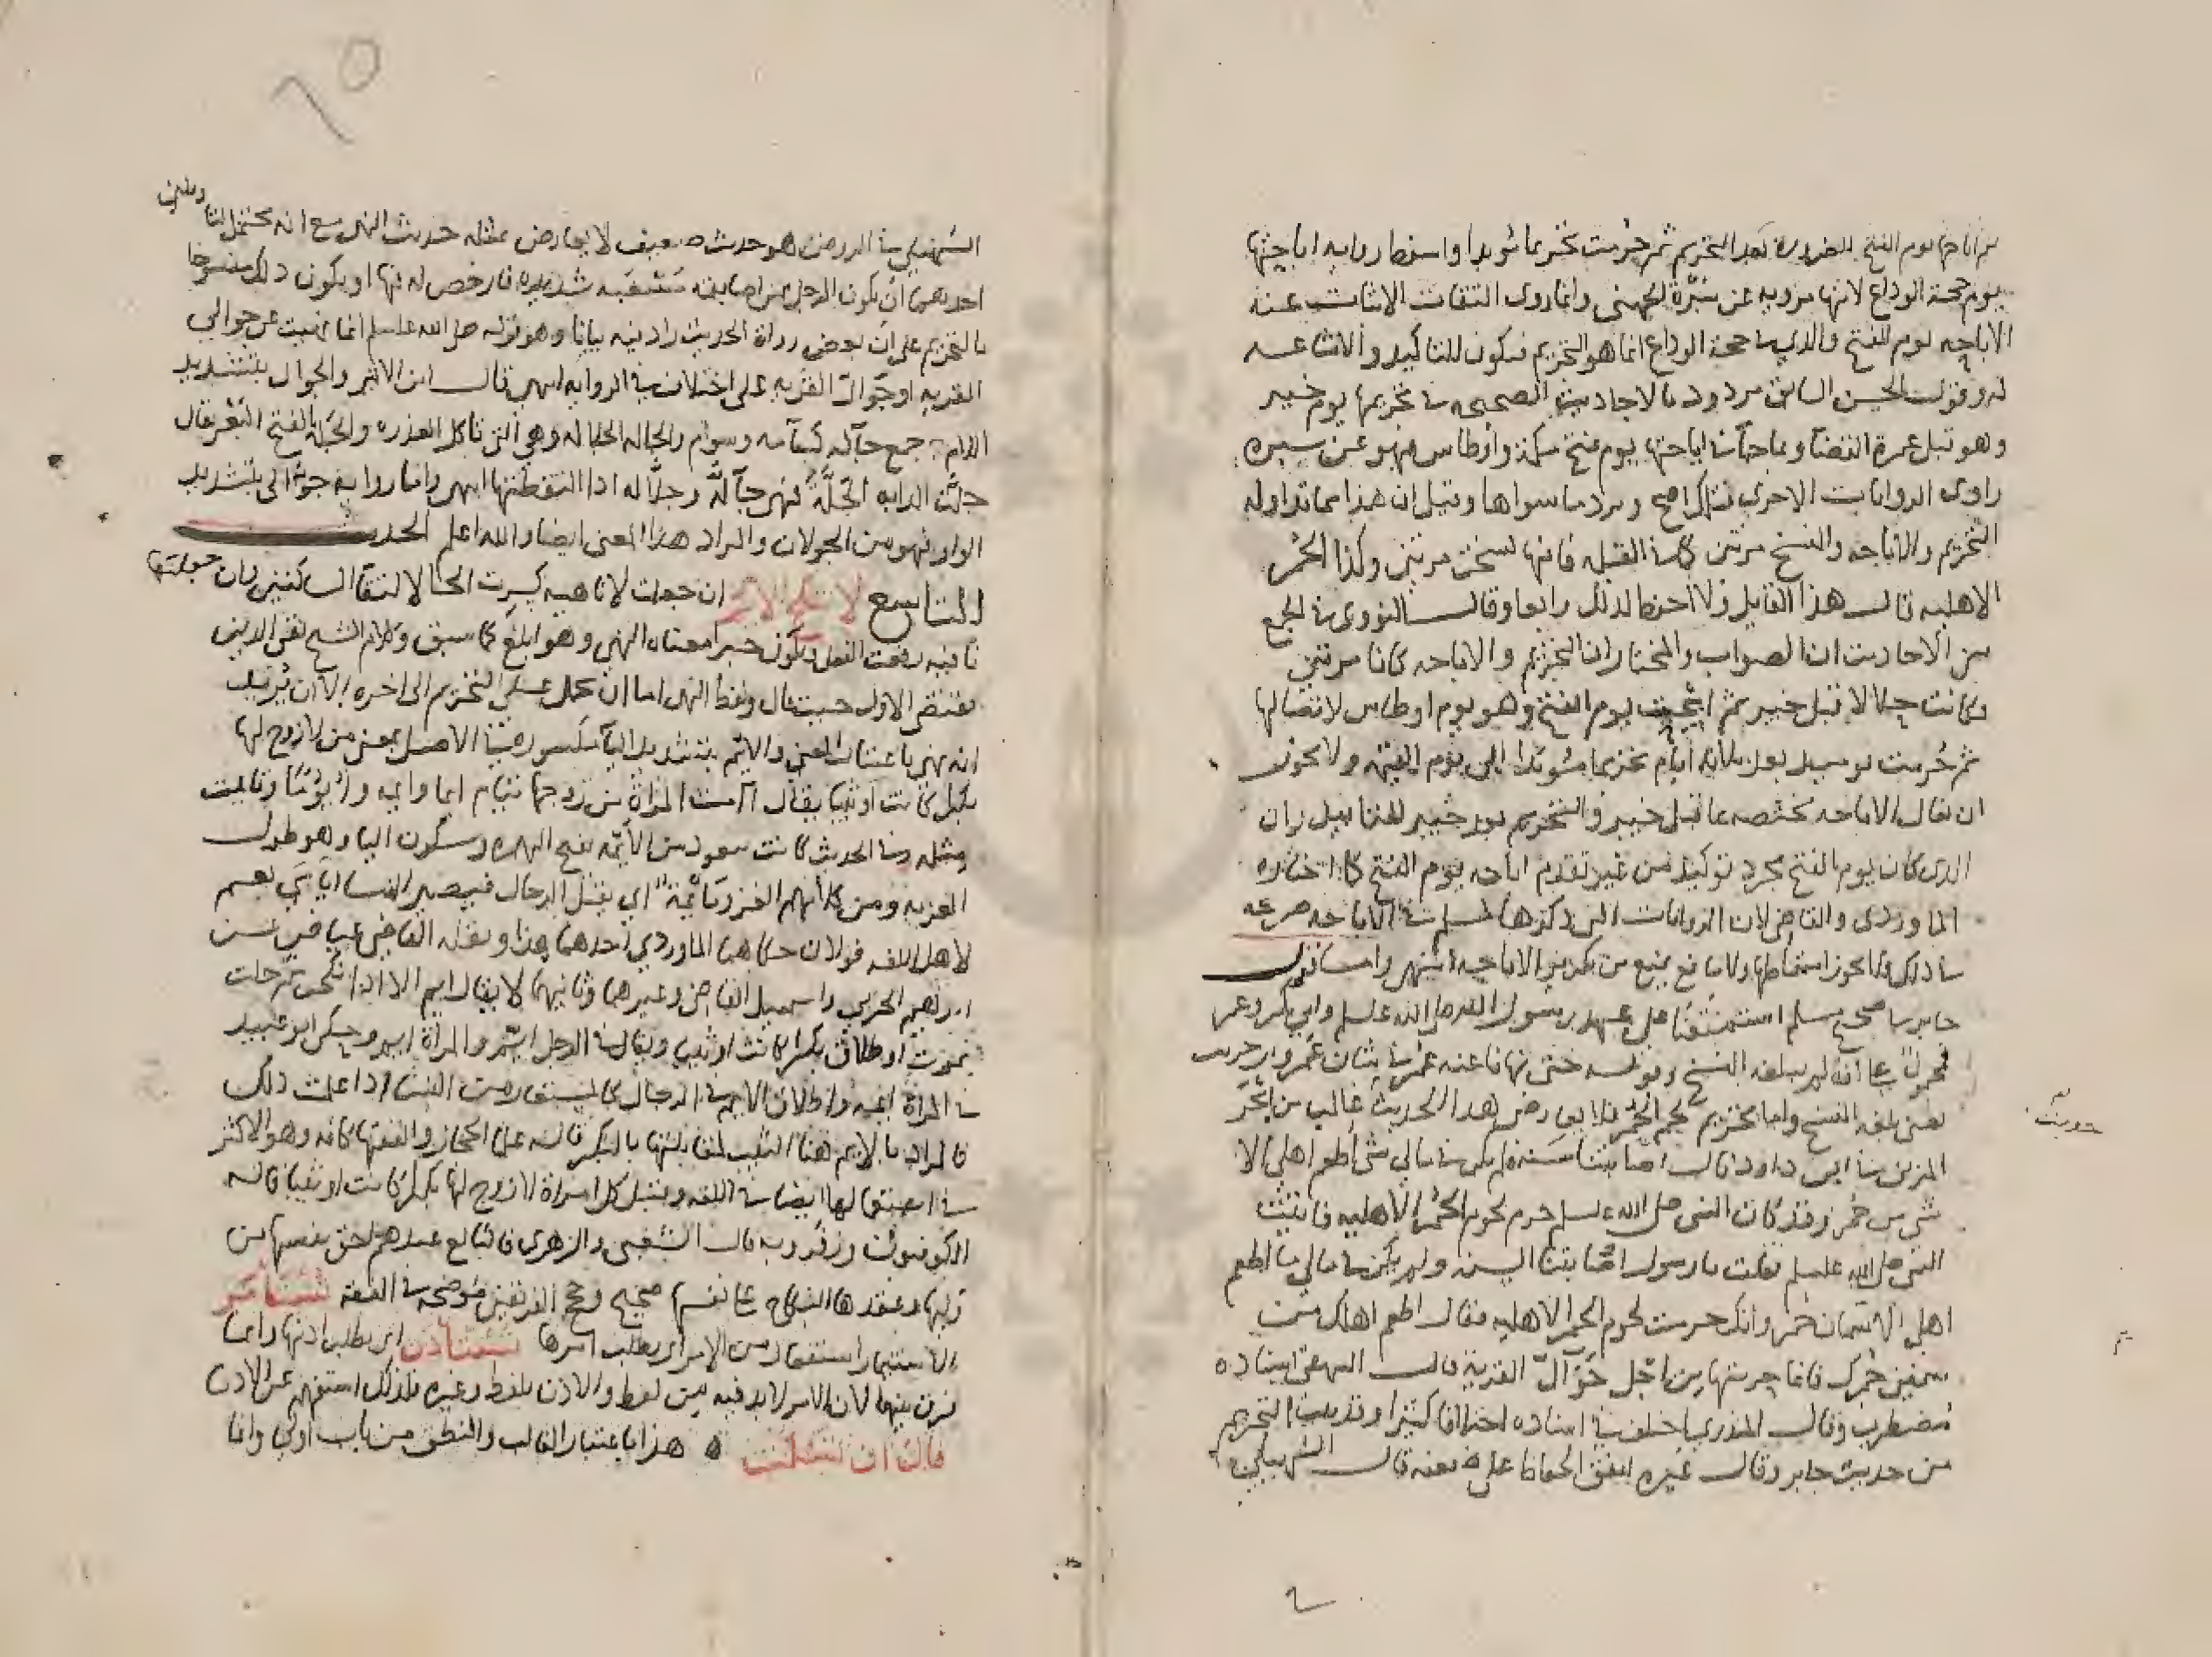 من اباحها يوم الفتح للضرورة بعد التحريم ثم حرمت تحريما مؤبدا واسقط رواية اباحتها
يوم حجة الوداع لانها مروية عن سبرة الجهني وانما روى الثقات الاثبات عنه
الاباحة يوم الفتح والذي في حجة الوداع انما هو التحريم فيكون للتاكيد والاشاعة
له وقول الحسن السابق مردود بالاحاديث الصحيحة في تحريمها يوم خيبر
وهو قبل عمرة القضا وما جا في اباحتها يوم فتح مكة واوطاس فهو عن سبرة
راوي الروايات الاخرى فذلك اصح ويرد ما سواها وقيل ان هذا مما تداوله
التحريم والاباحة والنسخ مرتين كما في القبلة فانها نسخت مرتين وكذا الحمر
الاهلية قال هذا القايل ولا احفظ لذلك رابعا وقال النووي في الجمع
بين الاحاديث ان الصواب والمختار ان التحريم والاباحة كانا مرتين
وكانت حلالا قبل خيبر ثم ابيحت يوم الفتح وهو يوم اوطاس لاتصالها
ثم حرمت يوميذ بعد ثلاثة ايام تحريما مؤبدا الى يوم القيمة ولا يجوز
ان يقال الاباحة مختصة بما قبل خيبر والتحريم يوم خيبر للتابيد وان
الذي كان يوم الفتح مجرد توكيد من غير تقدم اباحة يوم الفتح كما اختاره
الماوردي والقاضي لان الروايات التي ذكرها مسلم في الاباحة صريحة
في ذلك ولا يجوز اسقاطها ولا مانع يمنع من تكرير الاباحة انتهى واما قول
جابر في صحيح مسلم استمتعنا على عهد رسول الله صلى الله علسلم وابي بكر وعمر
فمحمول على انه لم يبلغه النسخ وقوله حتى نهانا عنه عمر في شان عمرو بن حريث
يعني بلغه النسخ واما تحريم لحم الحمر فلا يعارض هذا الحديث غالب بن ابجر
المزني في ابي داود قال اصابتنا سنة فلم يكن في مالي شي اطعم اهلي الا
شي من حمر وقد كان النبي صلى الله علسلم حرم لحوم الحمر الاهلية فاتيت
النبي صلى الله علسلم فقلت يا رسول اصابتنا السنة ولم يكن في مالي ما اطعم
اهلي الا سمان حمر وانك حرمت لحوم الحمر الاهلية فقال اطعم اهلك من
سمين حمرك فانما حرمتها من اجل جوال القرية قال البيهقي اسناده
مضطرب وقال المنذري اختلف في اسناده اختلافا كثيرا وقد ثبت التحريم
من حديث جابر وقال غيره اتفق الحفاظ على ضعفه قال السهيلي
حديث
٦٥
السهيلي في الروض هو حديث ضعيف لا يعارض بمثله حديث النهي مع انه محتمل لتاويلين
احدهما ان يكون الرجل ممن اصابته مسغبة شديدة فارخص له فيها او يكون ذلك منسوخا
بالتحريم على ان بعض رواة الحديث زاد فيه بيانا وهو قوله صلى الله علسلم انما نهيت عن حوالي
القرية او جوال القرية على اختلاف في الرواية انتهى قال ابن الاثير والجوال بتشديد
اللام جمع جالة كسآمة وسوام والجالة الجلالة وهي التي تاكل العذرة والجلة بالفتح البعر يقال
جلت الدابة الجلة فهي جآلة وجلالة اذا التقطتها انتهى واما رواية جوالي بتشديد
الواو فهو من الجولان والمراد هذا المعنى ايضا والله اعلم الحديث
التاسع لا تنكح الايم ان جعلت لا ناهية كسرت الحا لالتقا الساكنين وان جعلتها
نافية رفعت الفعل ويكون خبرا معناه النهي وهو ابلغ كما سبق وكلام الشيخ تقي الدين
يقتضي الاول حيث قال ولفظ النهي اما ان يحمل على التحريم الى اخره الا ان يريد
انه نهي باعتبار المعنى والايم بتشديد اليآ مكسورة في الاصل بمعنى من لا زوج لها
بكرا كانت او ثيبا يقال آمت المراة من زوجها تئيم ايما وايمة وايوما وتايمت
مثله وفي الحديث كانت تعوذ من الأيمة بفتح الهمزة وسكون اليا وهو طول
العزبة ومن كلامهم الغزو مايمة اي يقتل الرجال فيصير النسا ايامى نعم
لاهل اللغة قولان حكاهما الماوردي احدهما هذا ونقله القاضي عياض عن
ابرهيم الحربي واسمعيل القاضي وغيرهما وثانيهما لا يقال ايم الا اذا نكحت ثم خلت
بموت او طلاق بكرا كانت او ثيبا ويقال في الرجل ايم والمراة ايم وحكى ابو عبيد
في المراة ايمة واطلاق الايم في الرجال كالمستعار من النسا اذا علمت ذلك
فالمراد بالايم هنا الثيب لمقابلتها بالبكر قاله علما الحجاز والفقها كافة وهو الاكثر
في استعمالها ايضا في اللغة وقيل كل امراة لا زوج لها بكرا كانت او ثيبا قاله
الكوفيون وزفر وبه قال الشعبي والزهري فالبالغ عندهم احق بنفسها من
وليها وعقدها النكاح على نفسها صحيح وحجج الفريقين موضحة في الفقه تستامر
الاستيمار استفعال من الامر اي يطلب امرها تستاذن اي يطلب اذنها وانما
فرق بينهما لان الامر لا بد فيه من لفظ والاذن بلفظ وغيره فلذلك استفهم عن الاذن
قال ان تسكت ه هذا باعتبار الغالب والنطق من باب اولى وانما